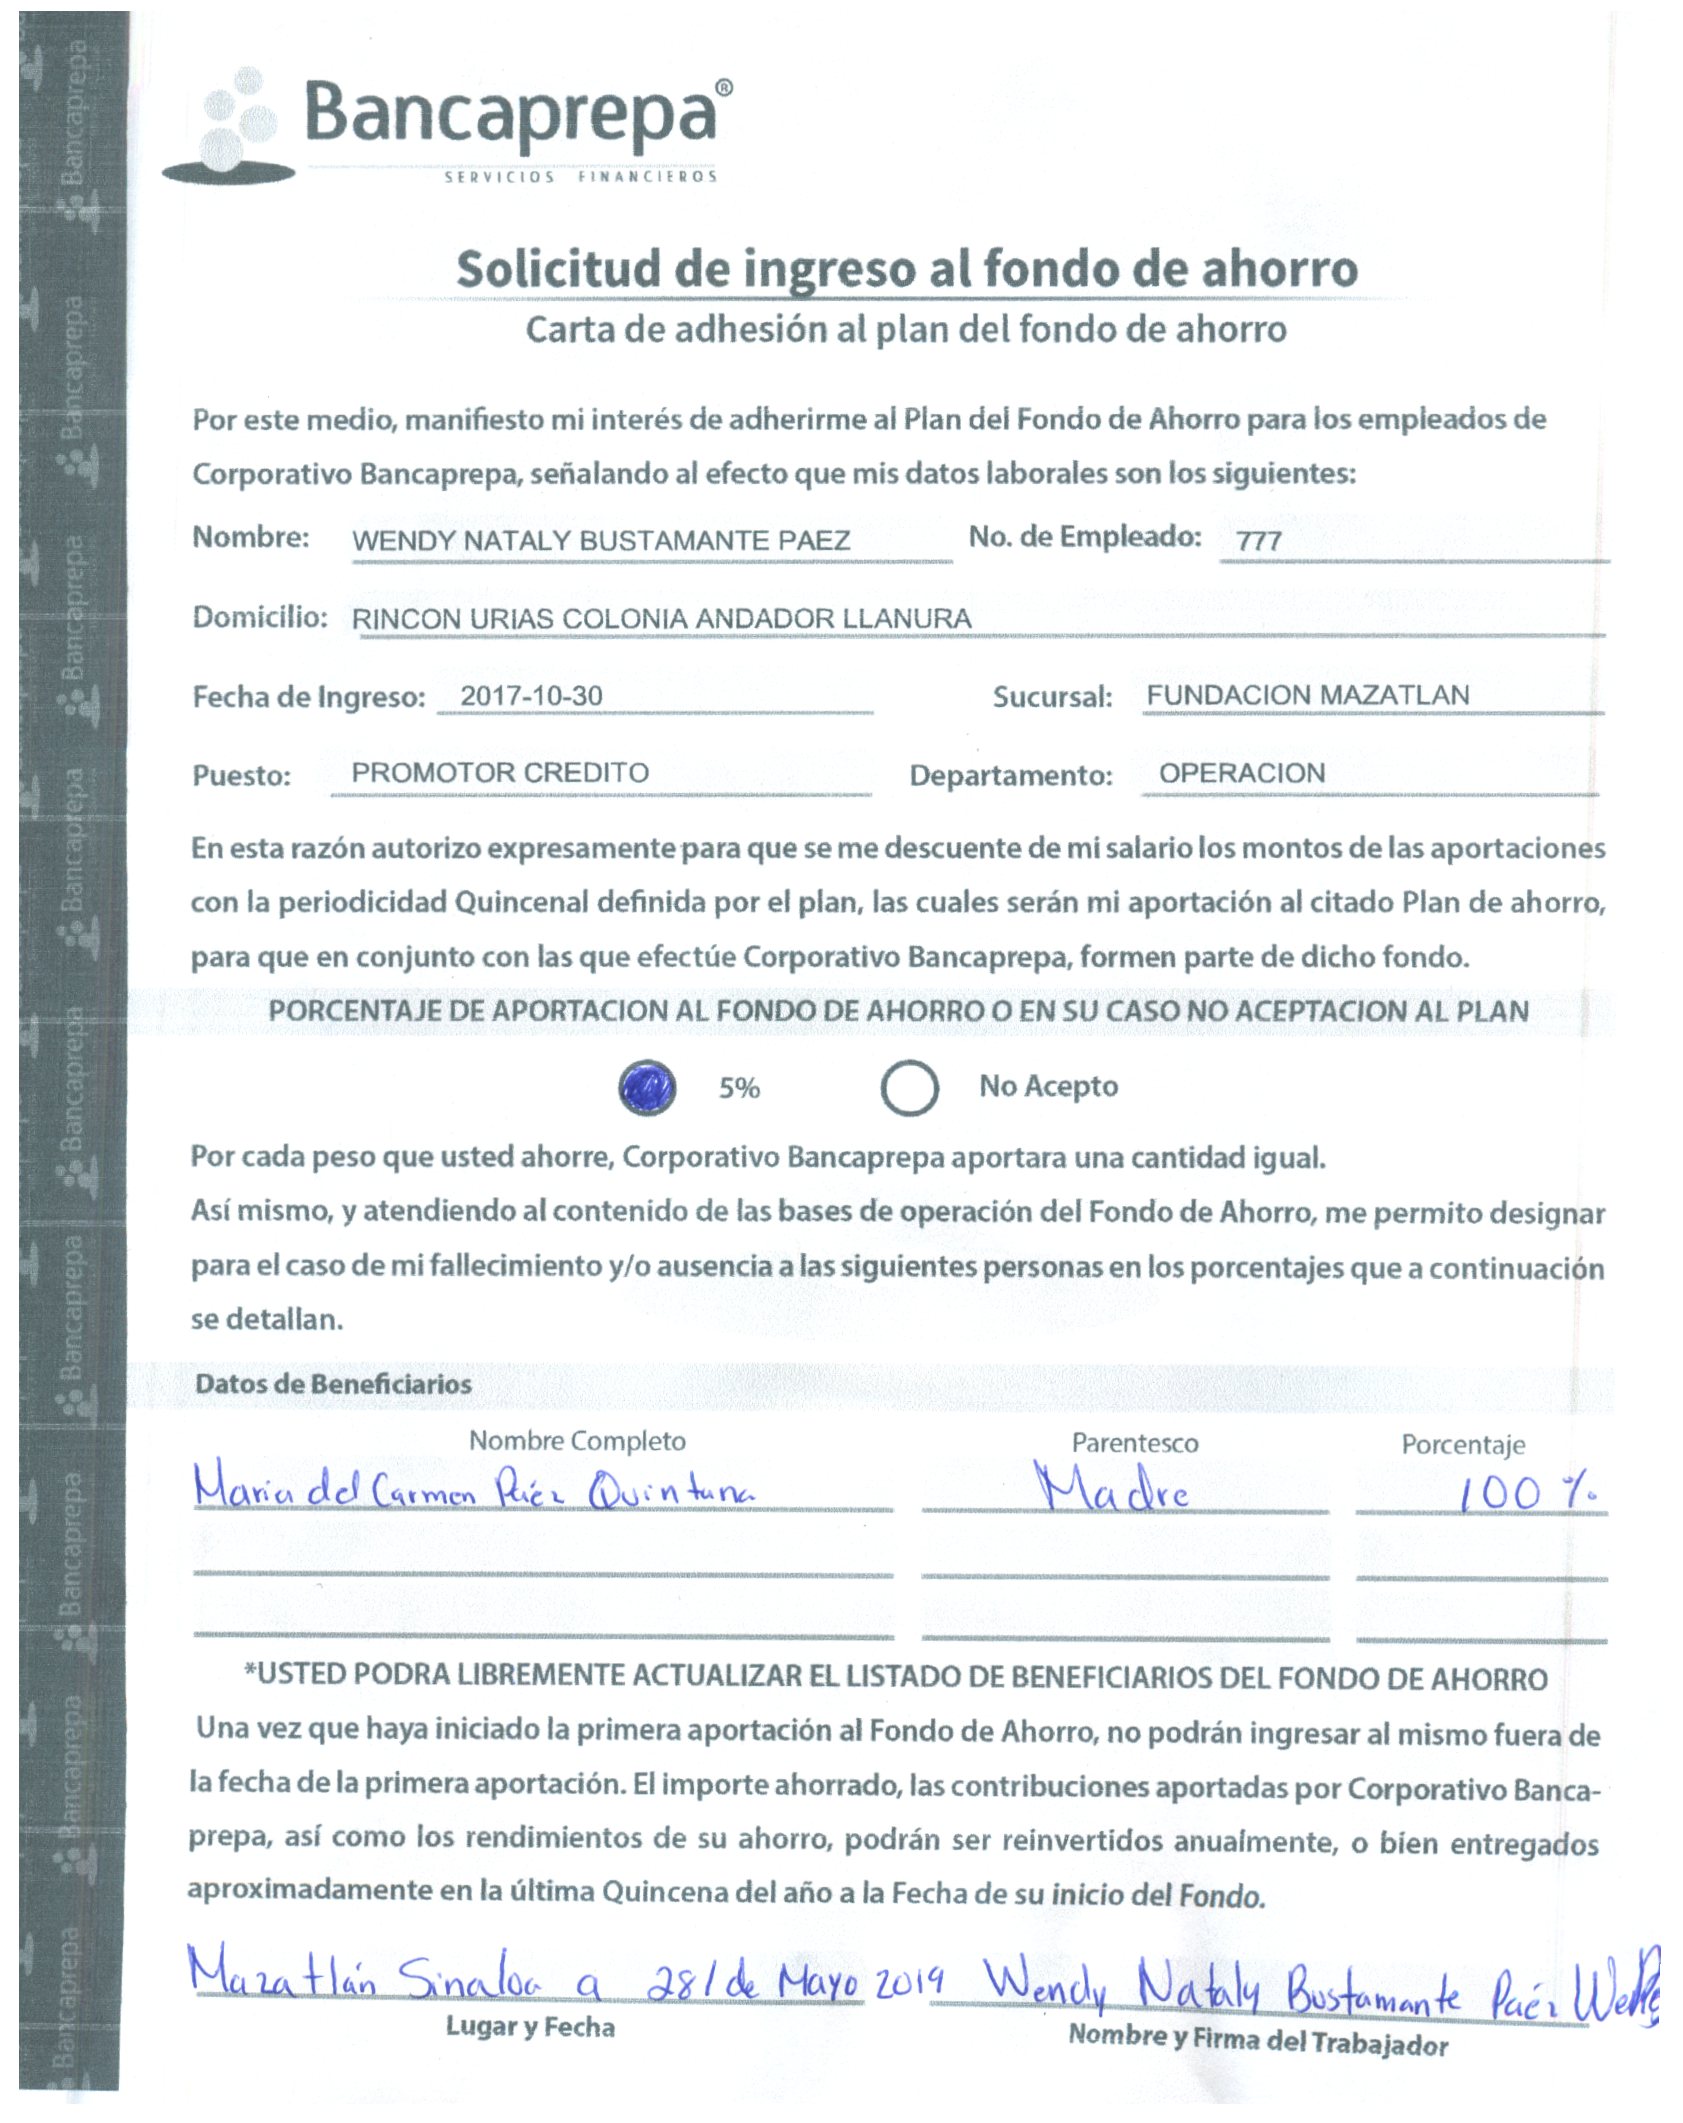 Bancaprepa®
SERVICIOS FINANCIEROS
Solicitud de ingreso al fondo de ahorro
Carta de adhesión al plan del fondo de ahorro
Por este medio, manifiesto mi interés de adherirme al Plan del Fondo de Ahorro para los empleados de
Corporativo Bancaprepa, señalando al efecto que mis datos laborales son los siguientes:
Nombre: WENDY NATALY BUSTAMANTE PAEZ No. de Empleado: 777
Domicilio: RINCON URIAS COLONIA ANDADOR LLANURA
Fecha de Ingreso: 2017-10-30 Sucursal: FUNDACION MAZATLAN
Puesto: PROMOTOR CREDITO Departamento: OPERACION
En esta razón autorizo expresamente para que se me descuente de mi salario los montos de las aportaciones
con la periodicidad Quincenal definida por el plan, las cuales serán mi aportación al citado Plan de ahorro,
para que en conjunto con las que efectúe Corporativo Bancaprepa, formen parte de dicho fondo.
PORCENTAJE DE APORTACION AL FONDO DE AHORRO O EN SU CASO NO ACEPTACION AL PLAN
5% No Acepto
Por cada peso que usted ahorre, Corporativo Bancaprepa aportara una cantidad igual.
Así mismo, y atendiendo al contenido de las bases de operación del Fondo de Ahorro, me permito designar
para el caso de mi fallecimiento y/o ausencia a las siguientes personas en los porcentajes que a continuación
se detallan.
Datos de Beneficiarios
Nombre Completo Parentesco Porcentaje
Maria del Carmen Páez Quintana Madre 100 %
*USTED PODRA LIBREMENTE ACTUALIZAR EL LISTADO DE BENEFICIARIOS DEL FONDO DE AHORRO
Una vez que haya iniciado la primera aportación al Fondo de Ahorro, no podrán ingresar al mismo fuera de
la fecha de la primera aportación. El importe ahorrado, las contribuciones aportadas por Corporativo Banca-
prepa, así como los rendimientos de su ahorro, podrán ser reinvertidos anualmente, o bien entregados
aproximadamente en la última Quincena del año a la Fecha de su inicio del Fondo.
Mazatlán Sinaloa a 28/de Mayo 2019 Wendy Nataly Bustamante Paéz
Lugar y Fecha Nombre y Firma del Trabajador
Bancaprepa
Bancaprepa
Bancaprepa
Bancaprepa
Bancaprepa
Bancaprepa
Bancaprepa
Bancaprepa
Bancaprepa